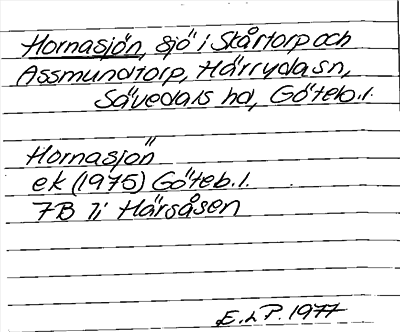 Hornasjön, sjö i Skårtorp och
Assmundtorp, Härryda sn,
Sävedals hd, Göteb.l.
Hornasjön
ek (1975) Göteb.l.
7B 7i Hårsåsen
E.LP. 1977